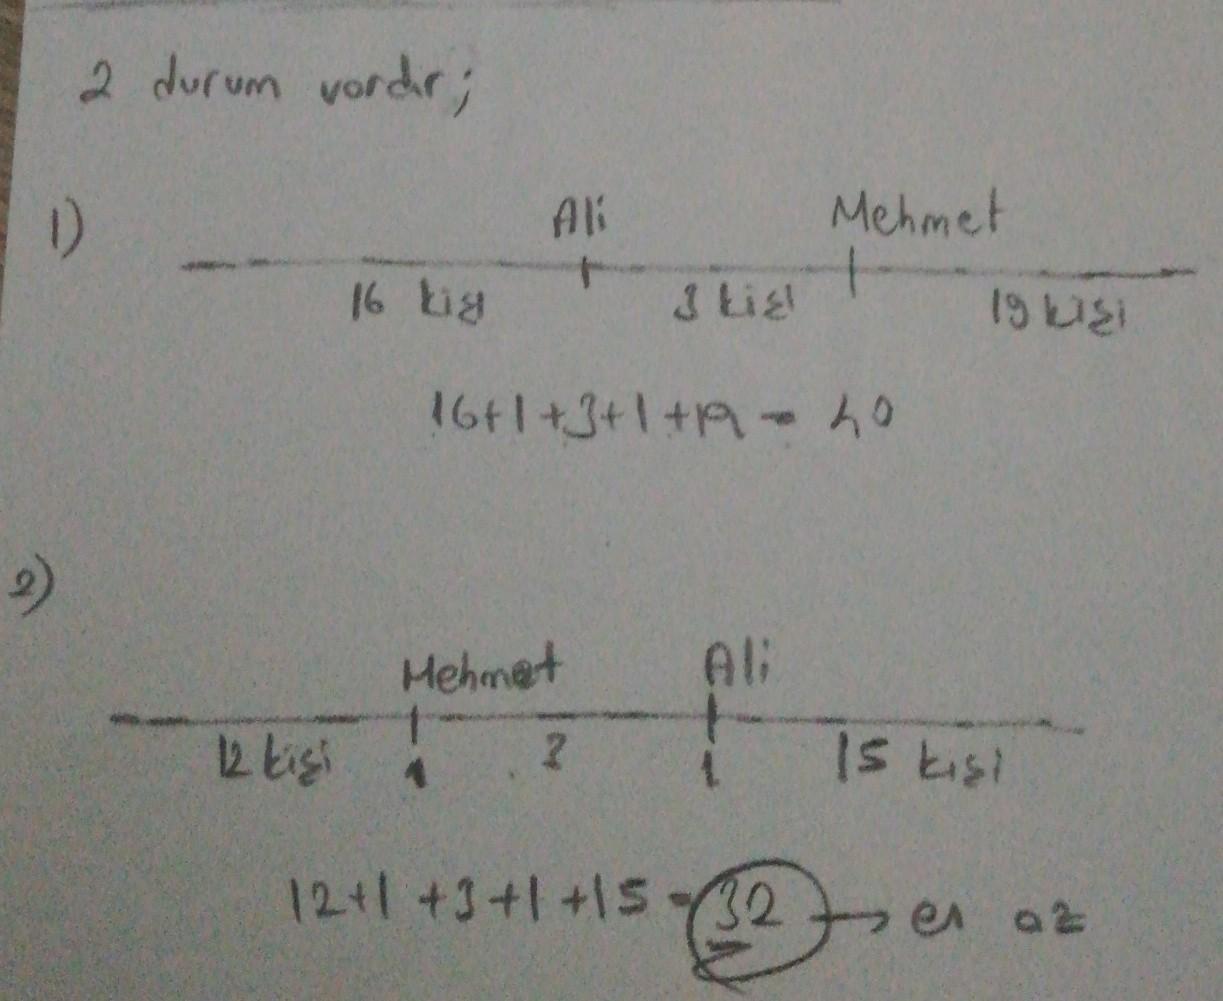 2 durum vardır;
1)
Ali Mehmet
16 kişi 3 kişi 19 kişi
16+1+3+1+19=40
2)
Mehmet Ali
12 kişi 1 3 1 15 kişi
12+1+3+1+15=32→en az